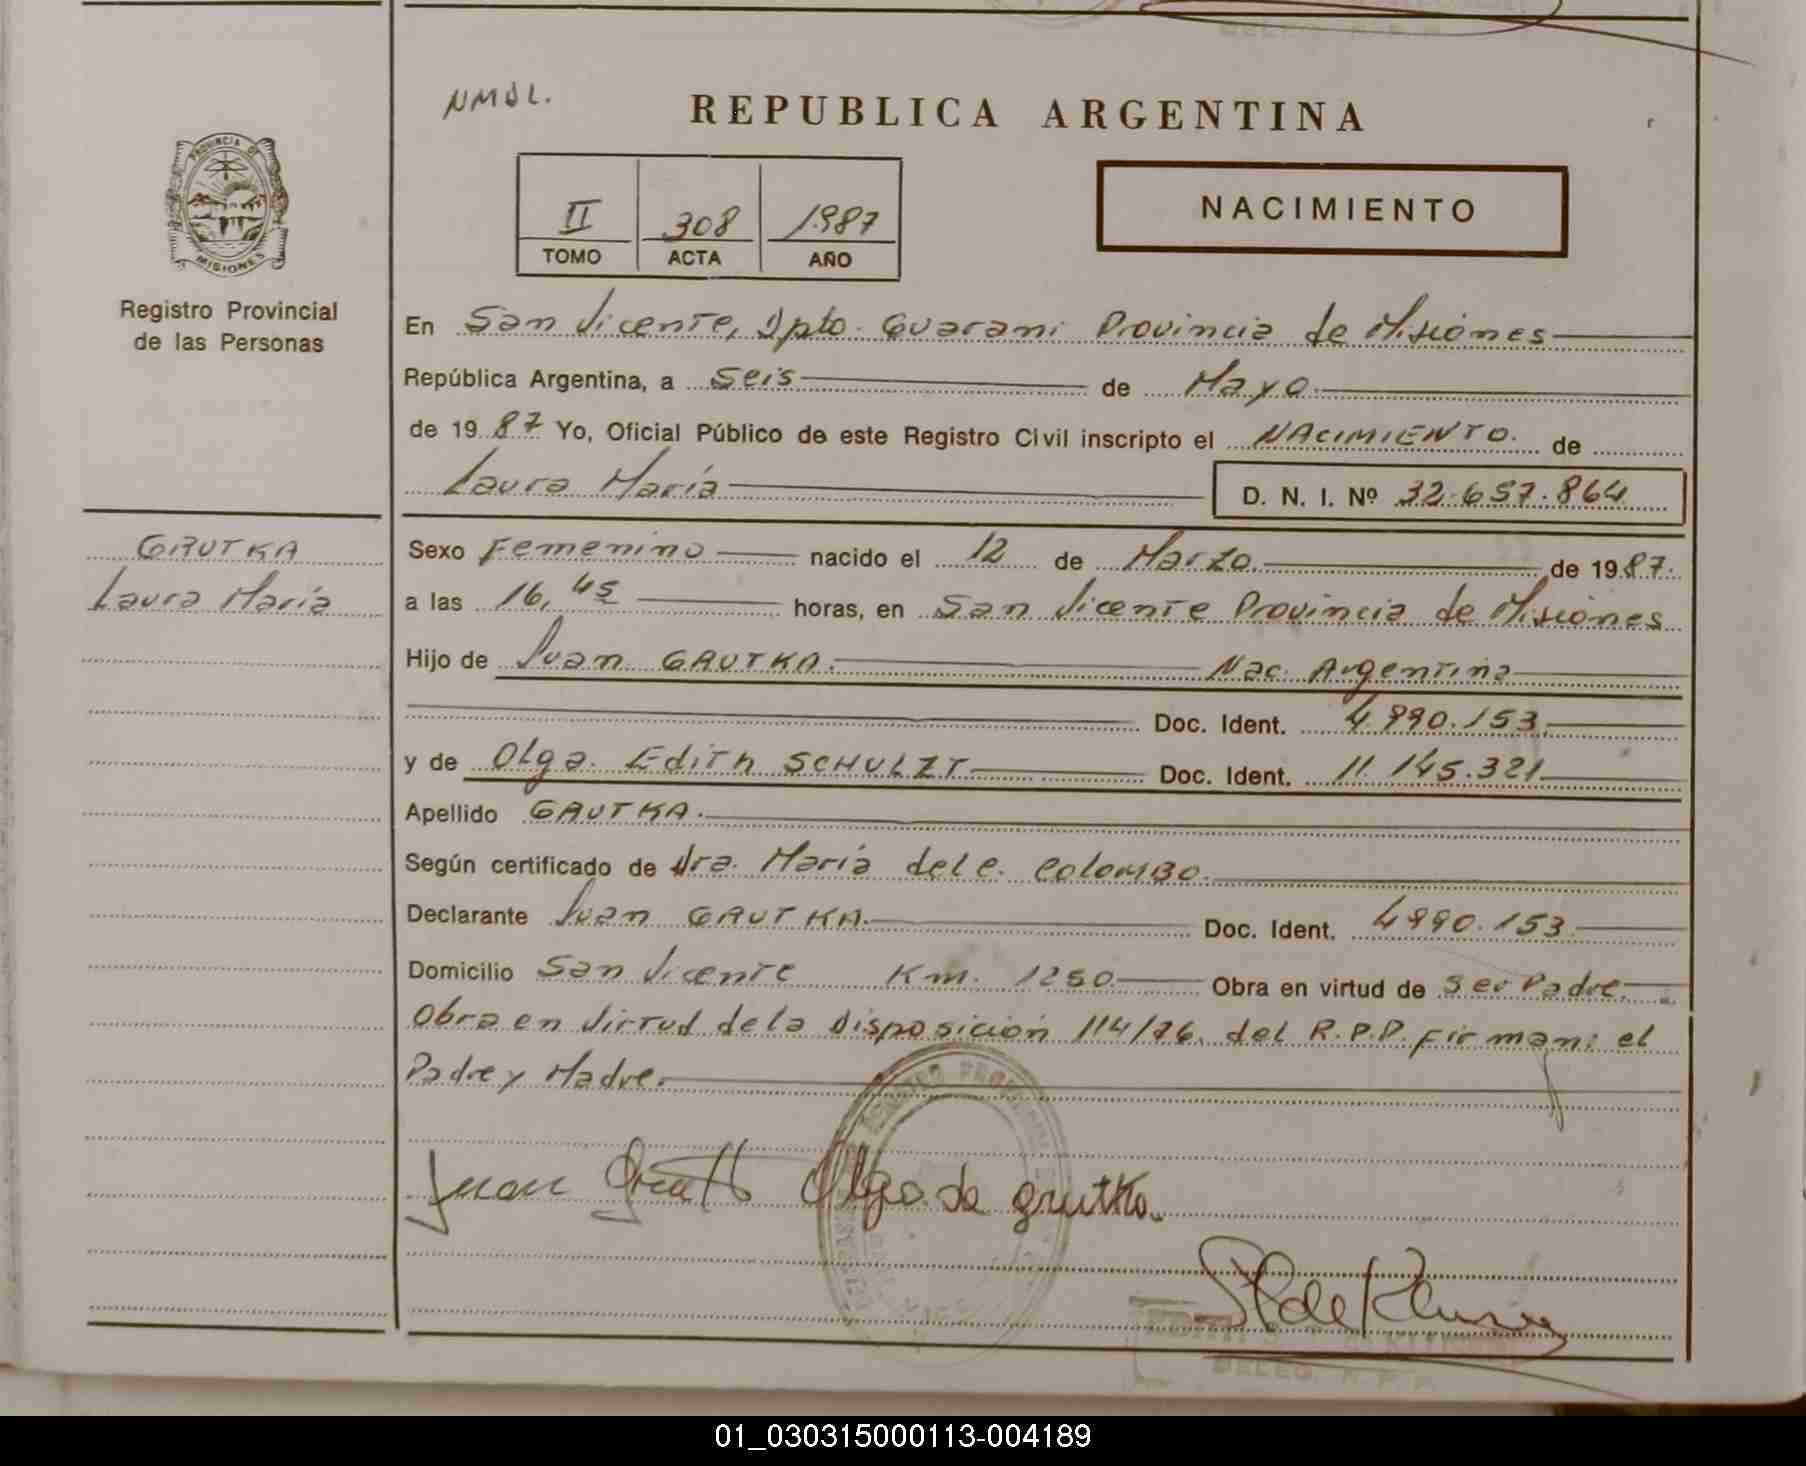 NMDL.
REPUBLICA ARGENTINA
PROVINCIA DE
MISIONES
Registro Provincial
de las Personas
II 308 1987
TOMO ACTA AÑO
NACIMIENTO
En San Vicente, Dpto. Guarani Provincia de Misiones
República Argentina, a Seis de Mayo
de 1987 Yo, Oficial Público de este Registro Civil inscripto el NACIMIENTO. de
Laura María D. N. I. Nº 32.657.864
GRUTKA
Laura María
Sexo Femenino nacido el 12 de Marzo de 1987.
a las 16,45 horas, en San Vicente Provincia de Misiones
Hijo de Juan GRUTKA. Nac. Argentina
Doc. Ident. 4.990.153
y de Olga. Edith SCHULZT Doc. Ident. 11.145.321
Apellido GRUTKA.
Según certificado de Dra. María del C. COLOMBO.
Declarante Juan GRUTKA. Doc. Ident. 4990.153
Domicilio San Vicente Km. 1250 Obra en virtud de Ser Padre.
Obra en Virtud de la Disposición 114/76. del R.P.P. firman: el
Padre y Madre.
Juan Olga de Grutka.
DELEG. R. P. P.
01_030315000113-004189